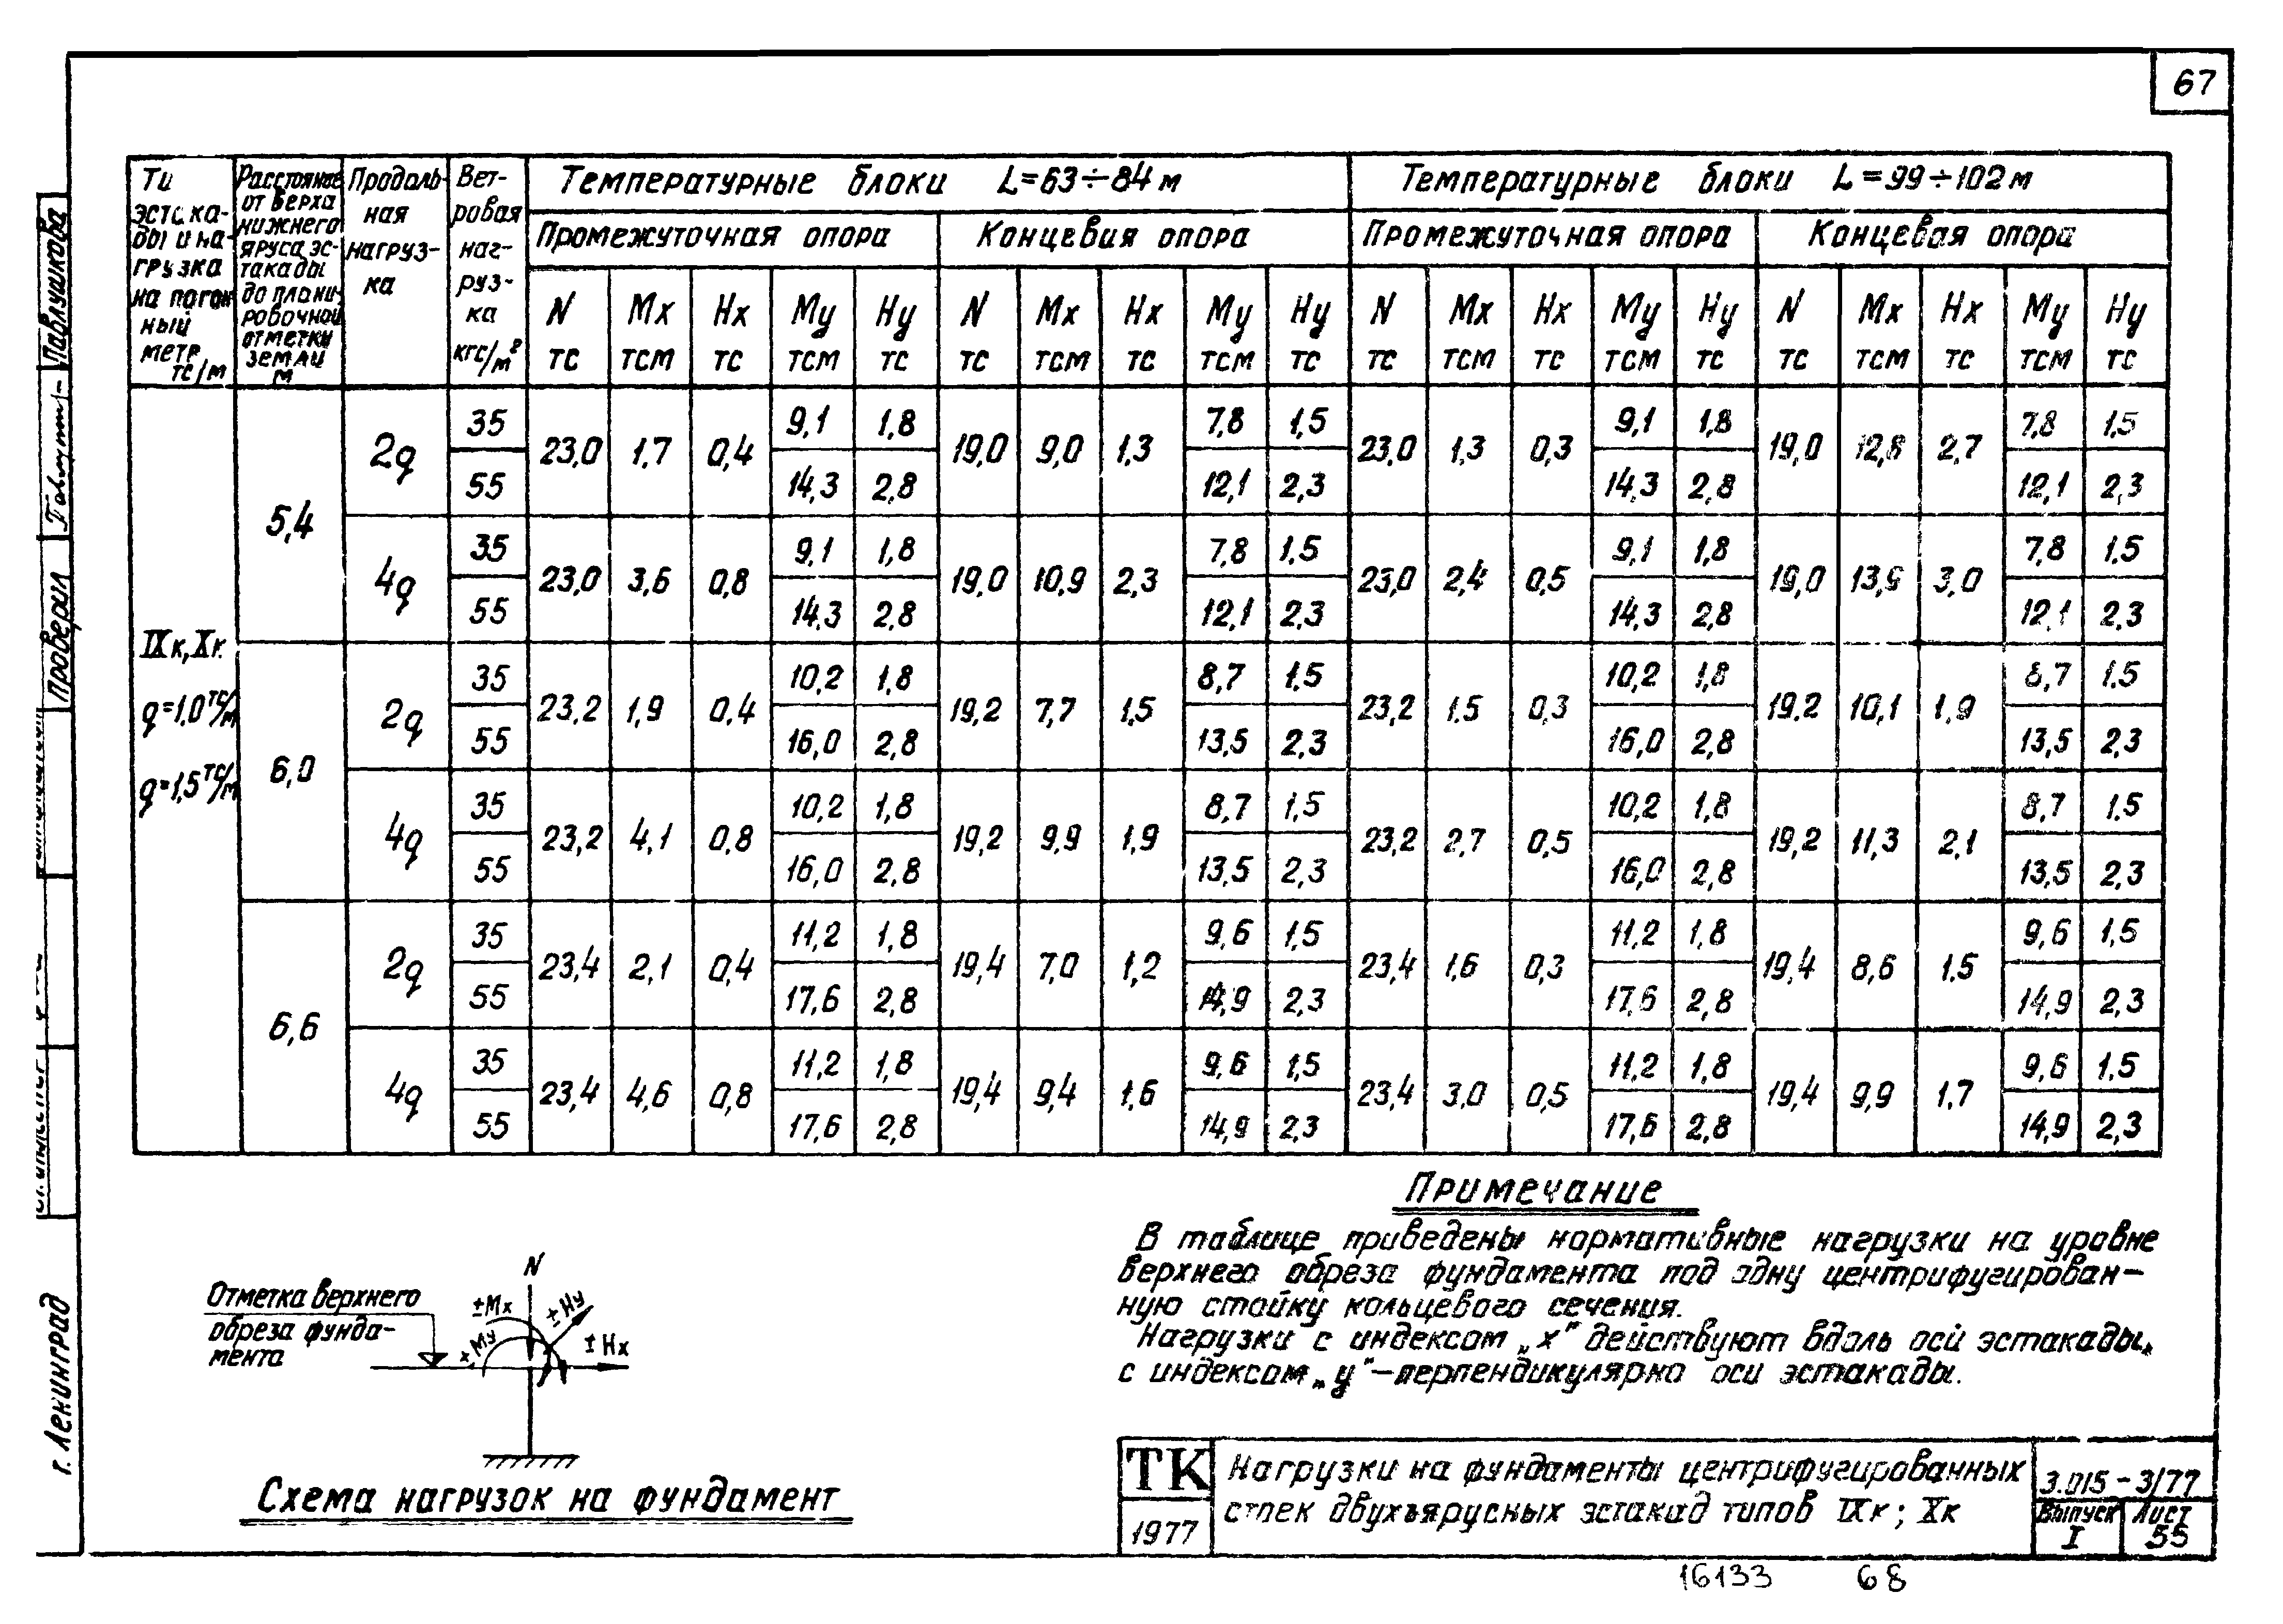 67
Температурные блоки L=63÷84м
Температурные блоки L=99÷102м
Ти эстака-
ды и на-
грузка
на погон
ный
метр
тс/м
Расстояние
от верха
нижнего
яруса эс-
такады
до плани-
ровочной
отметки
земли
м
Продоль-
ная
нагруз-
ка
Вет-
ровая
наг-
руз-
ка
кгс/м²
Промежуточная опора
Концевая опора
Промежуточная опора
Концевая опора
N Mx Hx My Hy N Mx Hx My Hy N Mx Hx My Hy N Mx Hx My Hy
тс тсм тс тсм тс тс тсм тс тсм тс тс тсм тс тсм тс тс тсм тс тсм тс
IXк, Xк
q=1,0 тс/м
q=1,5 тс/м
5,4
2q 35 23,0 1,7 0,4 9,1 1,8 19,0 9,0 1.3 7,8 1,5 23,0 1,3 0,3 9,1 1,8 19,0 12,8 2,7 7,8 1.5
55 14,3 2,8 12,1 2,3 14,3 2,8 12,1 2,3
4q 35 23,0 3,6 0,8 9,1 1,8 19,0 10,9 2,3 7,8 1.5 23,0 2,4 0,5 9,1 1,8 19,0 13,9 3,0 7,8 1.5
55 14,3 2,8 12,1 2.3 14,3 2,8 12,1 2.3
6,0
2q 35 23,2 1,9 0,4 10,2 1,8 19,2 7,7 1,5 8,7 1.5 23,2 1.5 0,3 10,2 1,8 19.2 10,1 1,9 8,7 1.5
55 16,0 2,8 13,5 2,3 16,0 2,8 13,5 2,3
4q 35 23,2 4,1 0,8 10,2 1,8 19,2 9,9 1,9 8,7 1,5 23,2 2,7 0,5 10,2 1,8 19,2 11,3 2,1 8,7 1.5
55 16,0 2,8 13,5 2,3 16,0 2,8 13,5 2,3
6,6
2q 35 23,4 2,1 0,4 11,2 1,8 19,4 7,0 1,2 9,6 1,5 23,4 1,6 0,3 11,2 1,8 19,4 8,6 1.5 9,6 1,5
55 17,6 2,8 14,9 2,3 17,6 2,8 14,9 2,3
4q 35 23,4 4,6 0,8 11,2 1,8 19,4 9,4 1,6 9,6 1,5 23,4 3,0 0,5 11,2 1,8 19,4 9,9 1,7 9,6 1.5
55 17,6 2,8 14,9 2,3 17,6 2,8 14,9 2,3
Примечание
В таблице приведены нормативные нагрузки на уровне
верхнего обреза фундамента под одну центрифугирован-
ную стойку кольцевого сечения.
Нагрузки с индексом „x" действуют вдоль оси эстакады,
с индексом „y"–перпендикулярно оси эстакады.
Отметка верхнего
обреза фунда-
мента
N
±Mx
±My
±Hy
±Hx
Схема нагрузок на фундамент
ТК
1977
Нагрузки на фундаменты центрифугированных
стоек двухъярусных эстакад типов IXк; Xк
3.015-3/77
Выпуск
I
Лист
55
16133 68
Павлушкова
Проверил
г. Ленинград